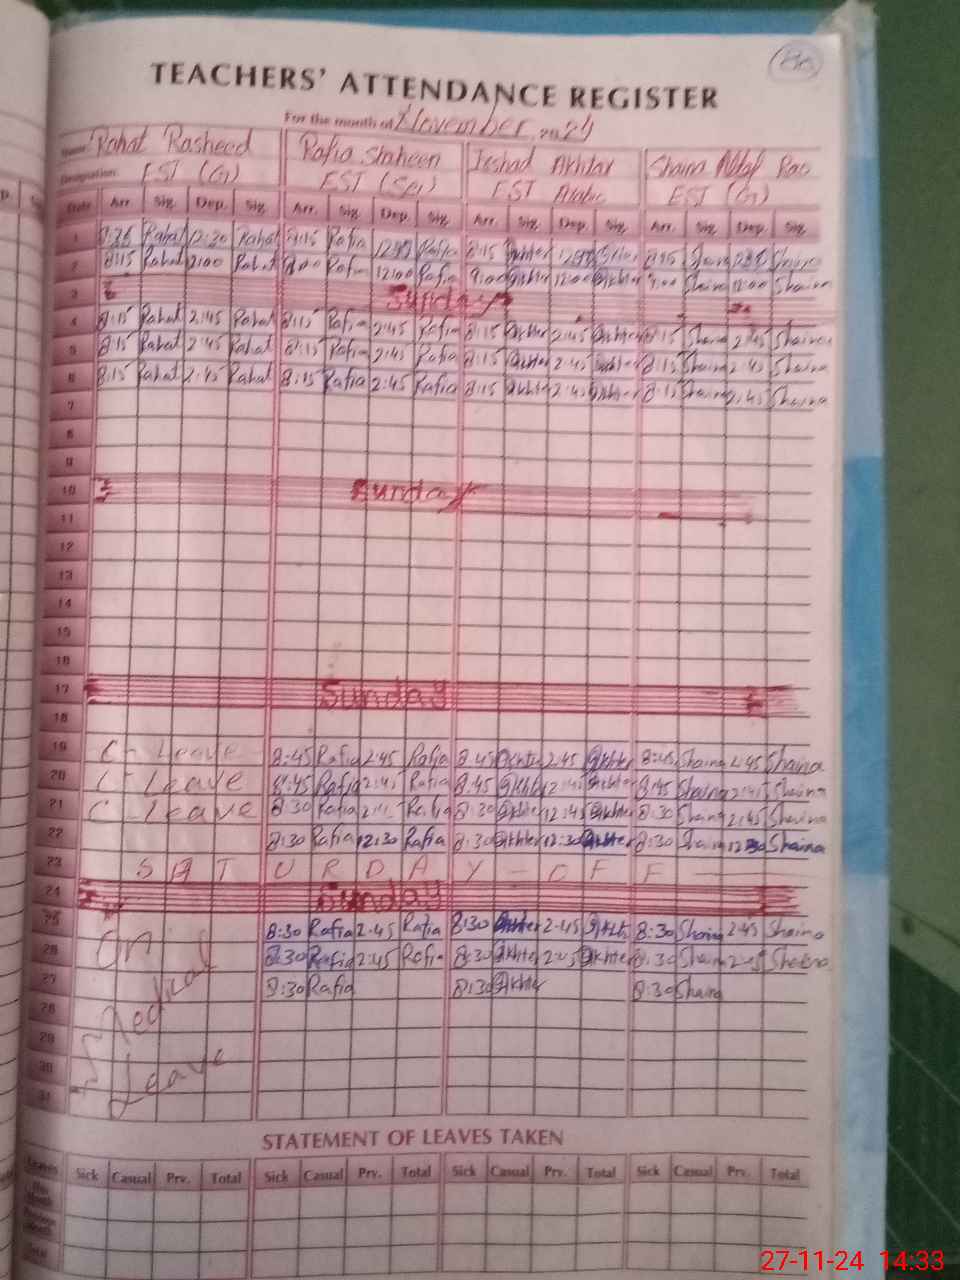 86
TEACHERS' ATTENDANCE REGISTER
For the month of November 2024
Name Rahat Rasheed Rafia Shaheen Irshad Akhtar Shaina Altaf Rao
Designation: EST (G) EST (Sci) EST Arabic EST (G)
Date Arr. Sig. Dep. Sig. Arr. Sig. Dep. Sig. Arr. Sig. Dep. Sig. Arr. Sig. Dep. Sig.
1 Rahat 12:30 Rahat 8:15 Rafia Rafia 8:15 Akhter 8:15 Shaina Shaina
2 8:15 Rahat Rahat 9:00 Rafia 12:00 Rafia 9:00 Akhter 12:00 Akhter 9:00 Shaina 12:00 Shaina
3 Sunday
4 8:15 Rahat 2:45 Rahat 8:15 Rafia 2:45 Rafia 8:15 Akhter 2:45 Akhter 8:15 Shaina 2:45 Shaina
5 8:15 Rahat 2:45 Rahat 8:15 Rafia 2:45 Rafia 8:15 Akhter 2:45 Akhter 8:15 Shaina 2:45 Shaina
6 8:15 Rahat 2:45 Rahat 8:15 Rafia 2:45 Rafia 8:15 Akhter 2:45 Akhter 8:15 Shaina 2:45 Shaina
7
8
9
10 Sunday
11
12
13
14
15
16
17 Sunday
18
19 C- Leave 8:45 Rafia 2:45 Rafia 8:45 Akhter 2:45 Akhter 8:45 Shaina 2:45 Shaina
20 C- Leave 8:45 Rafia 2:45 Rafia 8:45 Akhter 2:45 Akhter 8:45 Shaina 2:45 Shaina
21 C- Leave 8:30 Rafia 2:45 Rafia 8:30 Akhter 2:45 Akhter 8:30 Shaina 2:45 Shaina
22 8:30 Rafia 12:30 Rafia 8:30 Akhter 12:30 Akhter 8:30 Shaina 12:30 Shaina
23 SATURDAY - OFF
24 Sunday
25 On 8:30 Rafia 2:45 Rafia 8:30 Akhter 2:45 Akhter 8:30 Shaina 2:45 Shaina
26 8:30 Rafia 2:45 Rafia 8:30 Akhter 2:45 Akhter 8:30 Shaina 2:45 Shaina
27 Medical 8:30 Rafia 8:30 Akhter 8:30 Shaina
28
29
30 Leave
31
STATEMENT OF LEAVES TAKEN
Leaves Sick Casual Prv. Total Sick Casual Prv. Total Sick Casual Prv. Total Sick Casual Prv. Total
This Month
Previous Month
Total
27-11-24 14:33